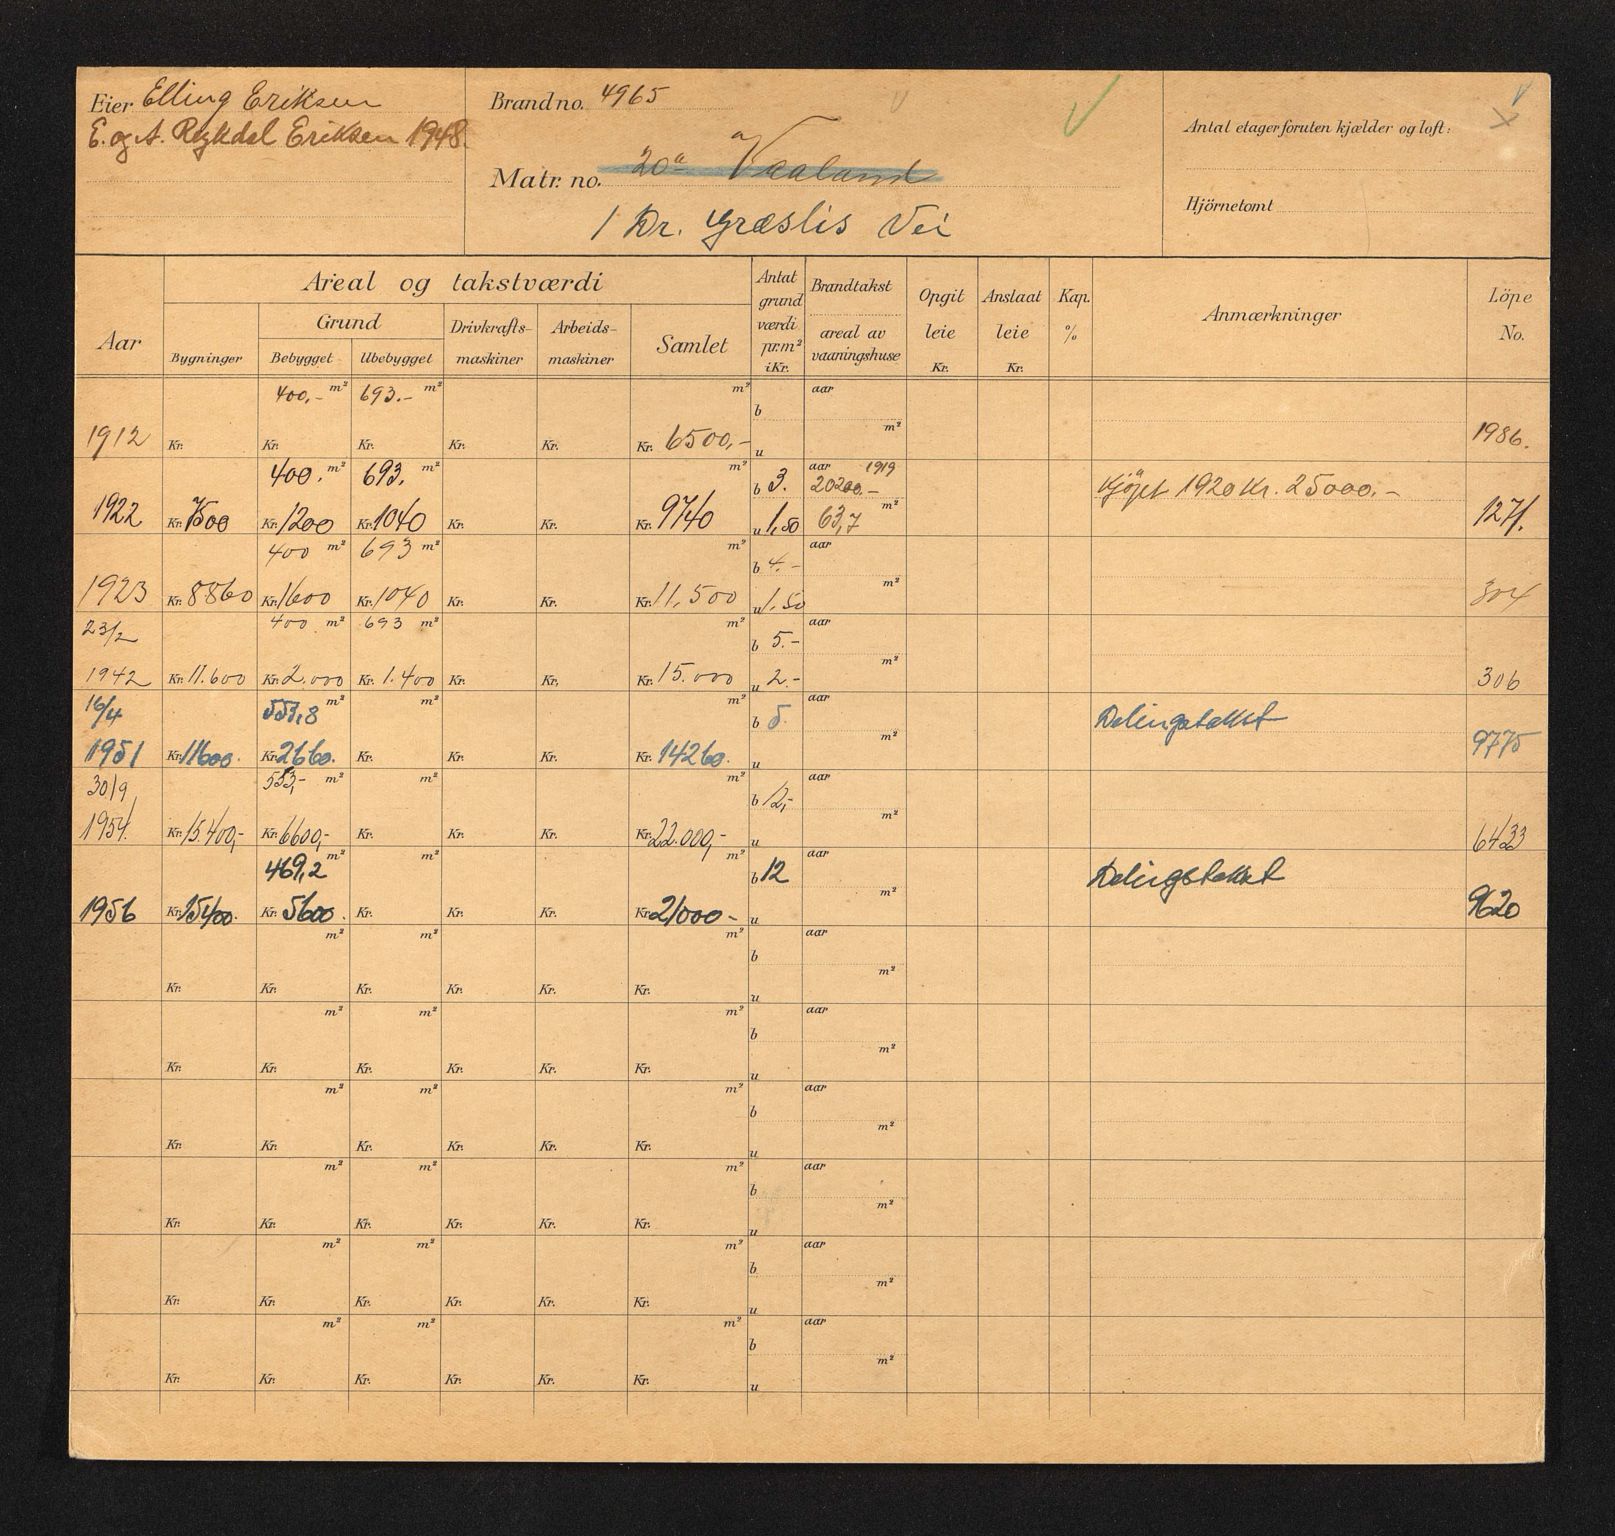 Eier Elling Eriksen
E. og A. Rykdal Eriksen 1948.
Brand no. 4965
Matr. no. 20a Vaaland
1 Dr. Græslis Vei
Antal etager foruten kjælder og loft:
Hjörnetomt
Areal og takstværdi
Aar Bygninger Grund Bebygget Ubebygget Drivkrafts-maskiner Arbeids-maskiner Samlet Antat grund værdi pr. m² i Kr. Brandtakst areal av vaaningshuse Opgit leie Kr. Anslaat leie Kr. Kap. % Anmærkninger Löpe No.
400,- m² 693.- m² m² b aar
1912 Kr. Kr. Kr. Kr. Kr. Kr. 6500,- u m² 1986.
400. m² 693. m² m² b 3. aar 1919 20200.- Kjøpt 1920 Kr. 25000.-
1922 Kr. 7500 Kr. 1200 Kr. 1040 Kr. Kr. Kr. 9740 u 1,50 63,7 m² 1271.
400 m² 693 m² m² b 4.- aar
1923 Kr. 8860 Kr. 1600 Kr. 1040 Kr. Kr. Kr. 11,500 u 1,50 m² 304
23/2 400 m² 693 m² m² b 5.- aar
1942 Kr. 11.600 Kr. 2.000 Kr. 1.400 Kr. Kr. Kr. 15.000 u 2.- m² 306
16/4 m² m² m² b 5 aar Delingstakst
1951 Kr. 11600. Kr. 2660. Kr. Kr. Kr. Kr. 14260. u m² 9775
30/9 553,- m² m² m² b 12,- aar
1954. Kr. 15.400,- Kr. 6600,- Kr. Kr. Kr. Kr. 22.000,- u m² 6433
469,2 m² m² m² b 12 aar Delingstakst
1956 Kr. 15400. Kr. 5600. Kr. Kr. Kr. Kr. 21000- u m² 9620
m² m² m² b aar
Kr. Kr. Kr. Kr. Kr. Kr. u m²
m² m² m² b aar
Kr. Kr. Kr. Kr. Kr. Kr. u m²
m² m² m² b aar
Kr. Kr. Kr. Kr. Kr. Kr. u m²
m² m² m² b aar
Kr. Kr. Kr. Kr. Kr. Kr. u m²
m² m² m² b aar
Kr. Kr. Kr. Kr. Kr. Kr. u m²
m² m² m² b aar
Kr. Kr. Kr. Kr. Kr. Kr. u m²